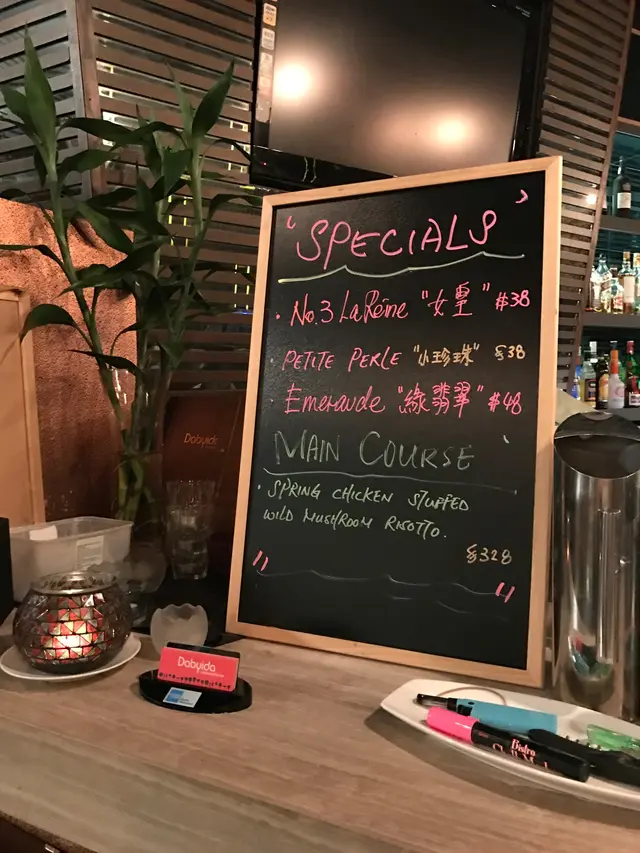 "SPECIALS"
· No.3 LaReine "女皇" $38
· PETITE PERLE "小珍珠" $38
· Emeraude "綠翡翠" $48
MAIN COURSE
· SPRING CHICKEN STUFFED
WILD MUSHROOM RISOTTO.
$328
Dabyida
Dabyida
Bistro